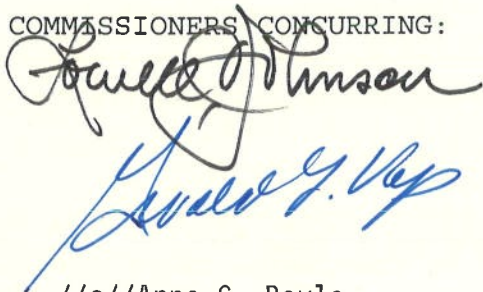 COMMISSIONERS CONCURRING:
Lowell Johnson
Gerald L. Vap
//s//Anne C. Boyle